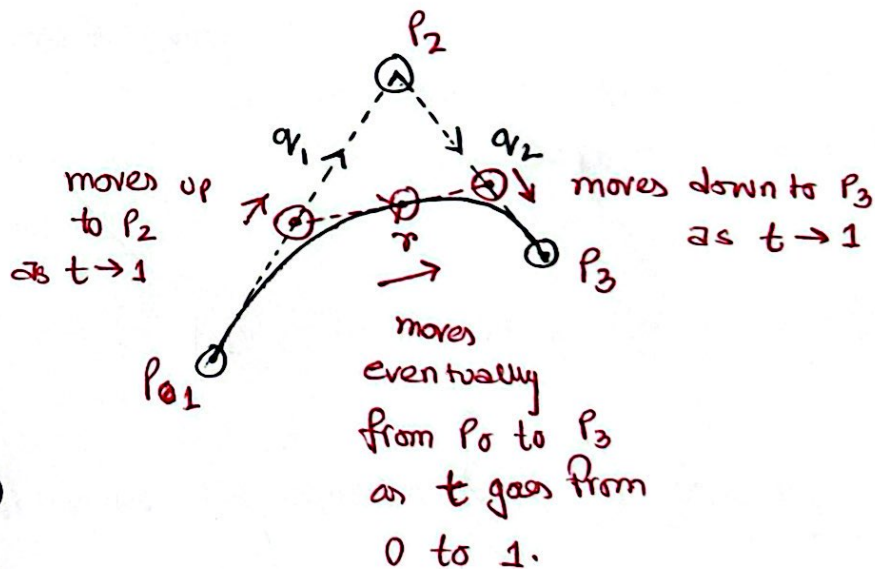 P2
q1
q2
moves up
to P2
as t → 1
moves down to P3
as t → 1
r
P3
P1
moves
eventually
from P0 to P3
as t goes from
0 to 1.